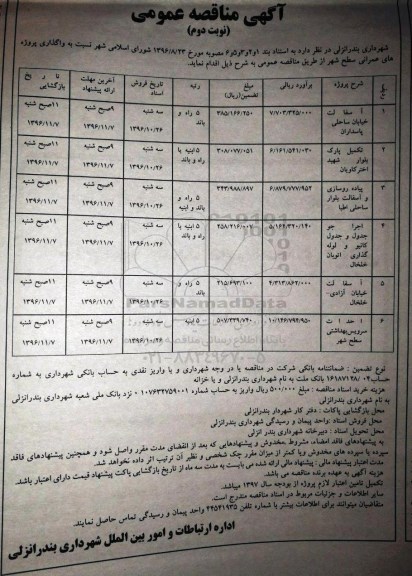 آگهی مناقصه عمومی
(نوبت دوم)
شهرداری بندرانزلی در نظر دارد به استناد بند ۱و۲و۳و۵و۶ مصوبه مورخ ۱۳۹۶/۸/۲۳ شورای اسلامی شهر نسبت به واگذاری پروژه
های عمرانی سطح شهر از طریق مناقصه عمومی به شرح ذیل اقدام نماید.
ردیف شرح پروژه برآورد ریالی مبلغ تضمین(ریال) رتبه تاریخ فروش اسناد آخرین مهلت ارائه پیشنهاد تاریخ بازگشایی
۱ آسفالت خیابان ساحلی پاسداران ۷/۷۰۳/۳۴۵/۰۰۰ ۳۸۵/۱۶۶/۲۵۰ ۵ راه و باند سه شنبه ۱۳۹۶/۱۰/۲۶ ۹صبح شنبه ۱۳۹۶/۱۱/۷ ۱۱صبح شنبه ۱۳۹۶/۱۱/۷
۲ تکمیل پارک بلوار شهید اخترکاویان ۶/۱۶۱/۵۴۱/۰۳۰ ۳۰۸/۰۷۷/۰۵۱ ۵ابنیه یا راه و باند سه شنبه ۱۳۹۶/۱۰/۲۶ ۹صبح شنبه ۱۳۹۶/۱۱/۷ ۱۱صبح شنبه ۱۳۹۶/۱۱/۷
۳ پیاده روسازی و آسفالت بلوار ساحلی اطبا ۶/۸۷۹/۷۷۷/۹۵۲ ۳۴۳/۹۸۸/۸۹۷ ۵ راه و باند و ابنیه سه شنبه ۱۳۹۶/۱۰/۲۶ ۹صبح شنبه ۱۳۹۶/۱۱/۷ ۱۱صبح شنبه ۱۳۹۶/۱۱/۷
۴ اجرا جو جدول و جدول کانیو و لوله گذاری اتوبان خلخال ۵/۱۶۴/۳۲۰/۱۴۰ ۲۵۸/۲۱۶/۰۰۷ ۵ ابنیه یا راه و باند سه شنبه ۱۳۹۶/۱۰/۲۶ ۹صبح شنبه ۱۳۹۶/۱۱/۷ ۱۱صبح شنبه ۱۳۹۶/۱۱/۷
۵ آسفالت خیابان آزادی- خلخال ۴/۳۱۳/۸۶۲/۰۰۰ ۲۱۵/۶۹۳/۱۰۰ ۵ راه و باند سه شنبه ۱۳۹۶/۱۰/۲۶ ۹صبح شنبه ۱۳۹۶/۱۱/۷ ۱۱صبح شنبه ۱۳۹۶/۱۱/۷
۶ احداث سرویس‌بهداشتی سطح شهر ۱۰/۱۴۶/۷۹۴/۹۵۰ ۵۰۷/۳۳۹/۷۴۰ ۵ ابنیه سه شنبه ۱۳۹۶/۱۰/۲۶ ۹صبح شنبه ۱۳۹۶/۱۱/۷ ۱۱صبح شنبه ۱۳۹۶/۱۱/۷
ParsNamadData
۰۲۱-۸۸۳۴۹۶۷۰-۵
نوع تضمین : ضمانتنامه بانکی شرکت در مناقصه یا در وجه شهرداری و یا واریز نقدی به حساب بانکی شهرداری به شماره
حساب۰۲ ۱۶۱۸۷۱۲۸/ بانک ملت به نام شهرداری بندرانزلی و یا خزانه
هزینه خرید اسناد مناقصه : مبلغ ۵۰۰/۰۰۰ ریال واریز به حساب شماره ۰۱۰۷۶۳۴۷۵۹۰۰۱ نزد بانک ملی شعبه شهرداری بندرانزلی
به نام شهرداری بندرانزلی
محل بازگشایی پاکات : دفتر کار شهردار بندرانزلی
محل فروش اسناد :واحد پیمان و رسیدگی شهرداری بندرانزلی
محل تحویل اسناد : دبیرخانه شهرداری بندر انزلی
به پیشنهادهای فاقد امضاء، مشروط ،مخدوش و پیشنهادهایی که بعد از انقضای مدت مقرر واصل شود و همچنین پیشنهادهای فاقد
سپرده یا سپرده های مخدوش ویا کمتر از میزان مقرر چک شخصی و نظیر آن ترتیب اثر داده نخواهد شد.
مدت اعتبار پیشنهاد مالی : پیشنهاد مالی ارائه شده می بایست به مدت سه ماه از تاریخ بازگشایی پاکت پیشنهاد قیمت دارای اعتبار باشد.
هزینه آگهی به عهده برنده مناقصه می باشد.
تکمیل تامین اعتبار لازم پروژه از بودجه سال ۱۳۹۷ میباشد.
سایر اطلاعات و جزئیات مربوط در اسناد مناقصه مندرج است.
متقاضیان میتوانند برای اطلاعات بیشتر با شماره تلفن ۴۴۵۴۱۹۳۵ واحد پیمان و رسیدگی تماس حاصل نمایند.
اداره ارتباطات و امور بین الملل شهرداری بندرانزلی